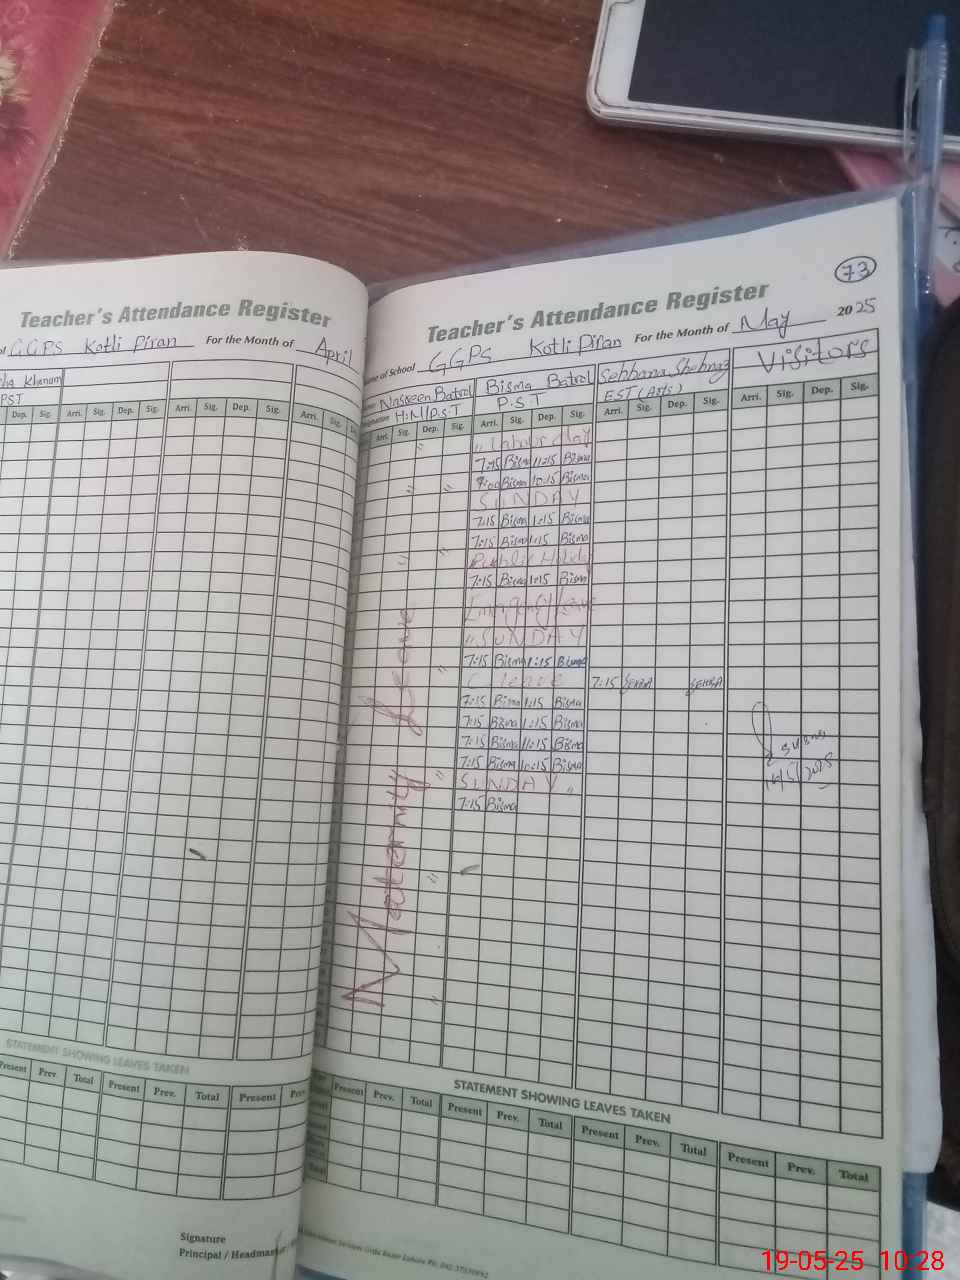 Teacher's Attendance Register
GGPS Kotli Piran For the Month of April
Khanum
PST
Dep. Sig. Arri. Sig. Dep. Sig. Arri. Sig. Dep. Sig. Arri. Sig.
STATEMENT SHOWING LEAVES TAKEN
Present Prev. Total Present Prev. Total Present Prev.
Signature
Principal / Headmaster
73
Teacher's Attendance Register
Name of School GGPS Kotli Piran For the Month of May 2025
Nasreen Batool Bisma Batool Sehbana Shehnaz Visitors
H.M/P.S.T P.S.T EST (Arts)
Arri. Sig. Dep. Sig. Arri. Sig. Dep. Sig. Arri. Sig. Dep. Sig. Arri. Sig. Dep. Sig.
Maternity Leave
" Labour Day
7:15 Bisma 11:15 Bisma
7:00 Bisma 10:15 Bisma
SUNDAY
7:15 Bisma 1:15 Bisma
7:15 Bisma 1:15 Bisma
Public Holiday
7:15 Bisma 1:15 Bisma
Leave
" SUNDAY
7:15 Bisma 1:15 Bisma
C leave 7:15 SEHBA SEHBA
7:15 Bisma 1:15 Bisma
7:15 Bisma 1:15 Bisma
7:15 Bisma 11:15 Bisma
7:15 Bisma 10:15 Bisma
SUNDAY "
7:15 Bisma
STATEMENT SHOWING LEAVES TAKEN
Present Prev. Total Present Prev. Total Present Prev. Total Present Prev. Total
19-05-25 10:28